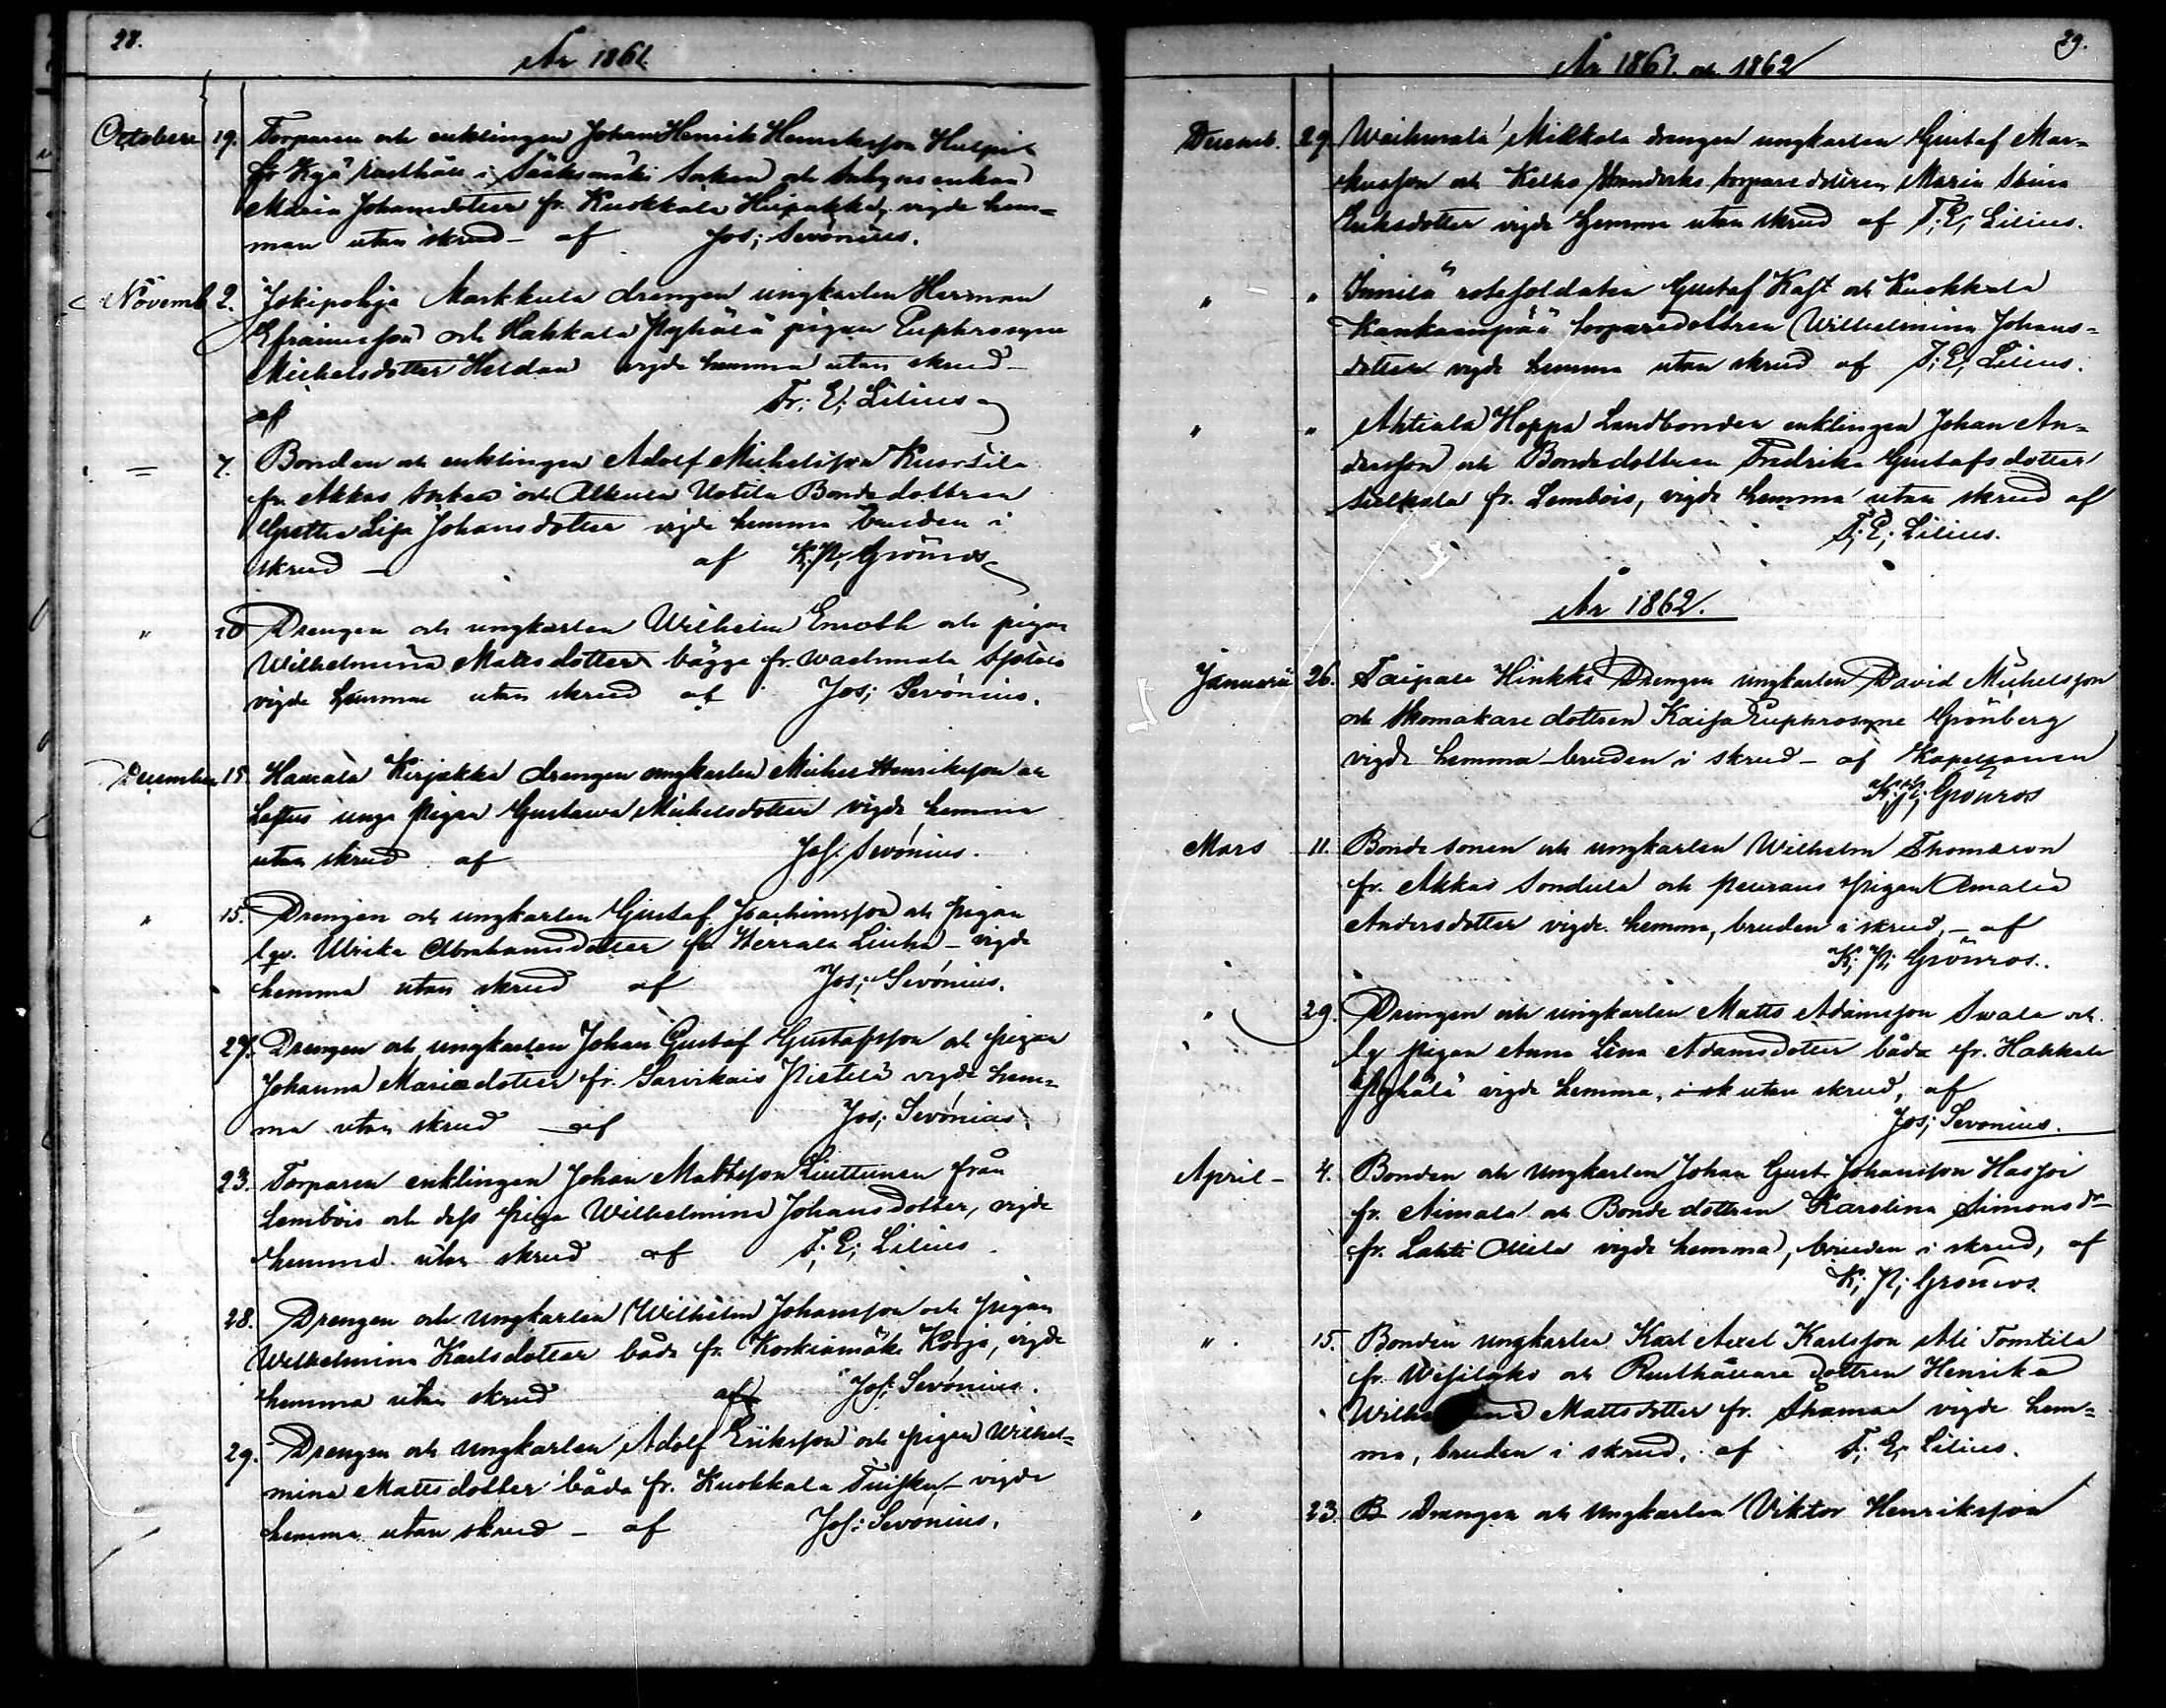 28.
År 1861.
Octobere 19. Torparen och enklingen Johan Henrik Henriksson
fr. Kyä rusthåll i Sääksmäki Socken och enkan
Maria Johansdotter fr. Kuokkala vigde hem=
man utan skrud – af Jos; Sevónius.
Novemb 2. Jokipohja Markkula drengen ungkarlen Herman
Efraimsson och Hakkala Pyhälä pigan Euphrosyne
Michelsdotter Heldan vigde hemma utan skrud –
af Fr; E; Lilius
= 7. Bonden och enklingen Adolf Michelsson
fr. Akkas Socken och Alkula Uotila Bondedottren
Gretha Lisa Johansdotter vigde hemma bruden i
skrud – af K; N; Grönros
" 10 Drengen och ungkarlen Wilhelm Enroth och pigan
Wilhelmina Mattsdotter bägge fr. Wachmala
vigde hemma utan skrud af Jos; Sevónius.
December 15. Haurala Kirjakka drengen ungkarlen Michel Henriksson och
unga pigan Gustawa Michelsdotter vigde hemma
utan skrud af Jos; Sevónius.
" 15. Drengen och ungkarlen Gustaf Joachimsson och pigan
lgv. Ulrika Abrahamsdotter fr. Herrala Liuha – vigde
hemma utan skrud af Jos; Sevónius.
27. Drengen och ungkarlen Johan Gustaf Gustafsson och pigan
Johanna Mariædotter fr. Sarvikais Pietilä vigde hem=
ma utan skrud af Jos; Sevónius
23. Torparen enklingen Johan Mattsson Liuttunen från
Lembois och dess piga Wilhelmina Johansdotter, vigde
hemma utan skrud af F; E; Lilius
28. Drengen och Ungkarlen Wilhelm Johansson och pigan
Wilhelmina Karlsdotter båda fr. Korkiamäki Korja, vigde
hemma utan skrud af Jos; Sevónius.
29. Drengen och Ungkarlen Adolf Eriksson och pigan Wilhel=
mina Mattsdotter båda fr. Kuokkala Tuisku – vigde
hemma utan skrud – af Jos: Sevónius.
29.
År 1861. och 1862
Decemb. 29 Wachmala Mikkola drengen ungkarlen Gustaf Mar=
kusson och Kelho torparedottren Maria Stina
Eriksdotter vigde hemma utan skrud af F; E; Lilius.
" " Innilä rotesoldaten Gustaf Kast och Kuokkala
Kankaanpää torparedottren Wilhelmina Johans=
dotter vigde hemma utan skrud af F; E; Lilius.
" " Ahtiala Hoppa Landbonden enklingen Johan An=
dersson och Bondedottren Fredrika Gustafsdotter
fr. Lembois, vigde hemma utan skrud af
F; E; Lilius.
År 1862.
Januari 26. Taipale Hinkka Drengen ungkarlen David Michelsson
och Skomakare dottren Kaisa Euphrosyne Grönberg
vigde hemma – bruden i skrud – af Kapellanen
K; N; Grönros
Mars 11. Bonde sonen och ungkarlen Wilhelm Thomæson
fr. Akkas Sondula och Peurans pigan Amalia
Andersdotter vigde hemma, bruden i skrud, – af
K; N; Grönros.
" 29. Drengen och ungkarlen Matts Adamsson Swala och
lg pigan Anna Lena Adamsdotter båda fr. Hakkala
Pyhälä vigde hemma, i sk utan skrud, af
Jos; Sevonius.
April – 4. Bonden och Ungkarlen Johan Gust. Johansson Hasjoi
fr. Aimala och Bonde dottren Karolina Simonsdr
fr. Lahti Ollila vigde hemma, bruden i skrud, af
K; N; Grönros.
" 15. Bonden Ungkarlen Karl Axel Karlsson Ali Tomtila
fr. Wesilaks och Rusthållare dottren Henrika
Mattsdotter fr. vigde hem=
ma, bruden i skrud, af F; E; Lilius.
" 23. B Drengen och Ungkarlen Viktor Henriksson